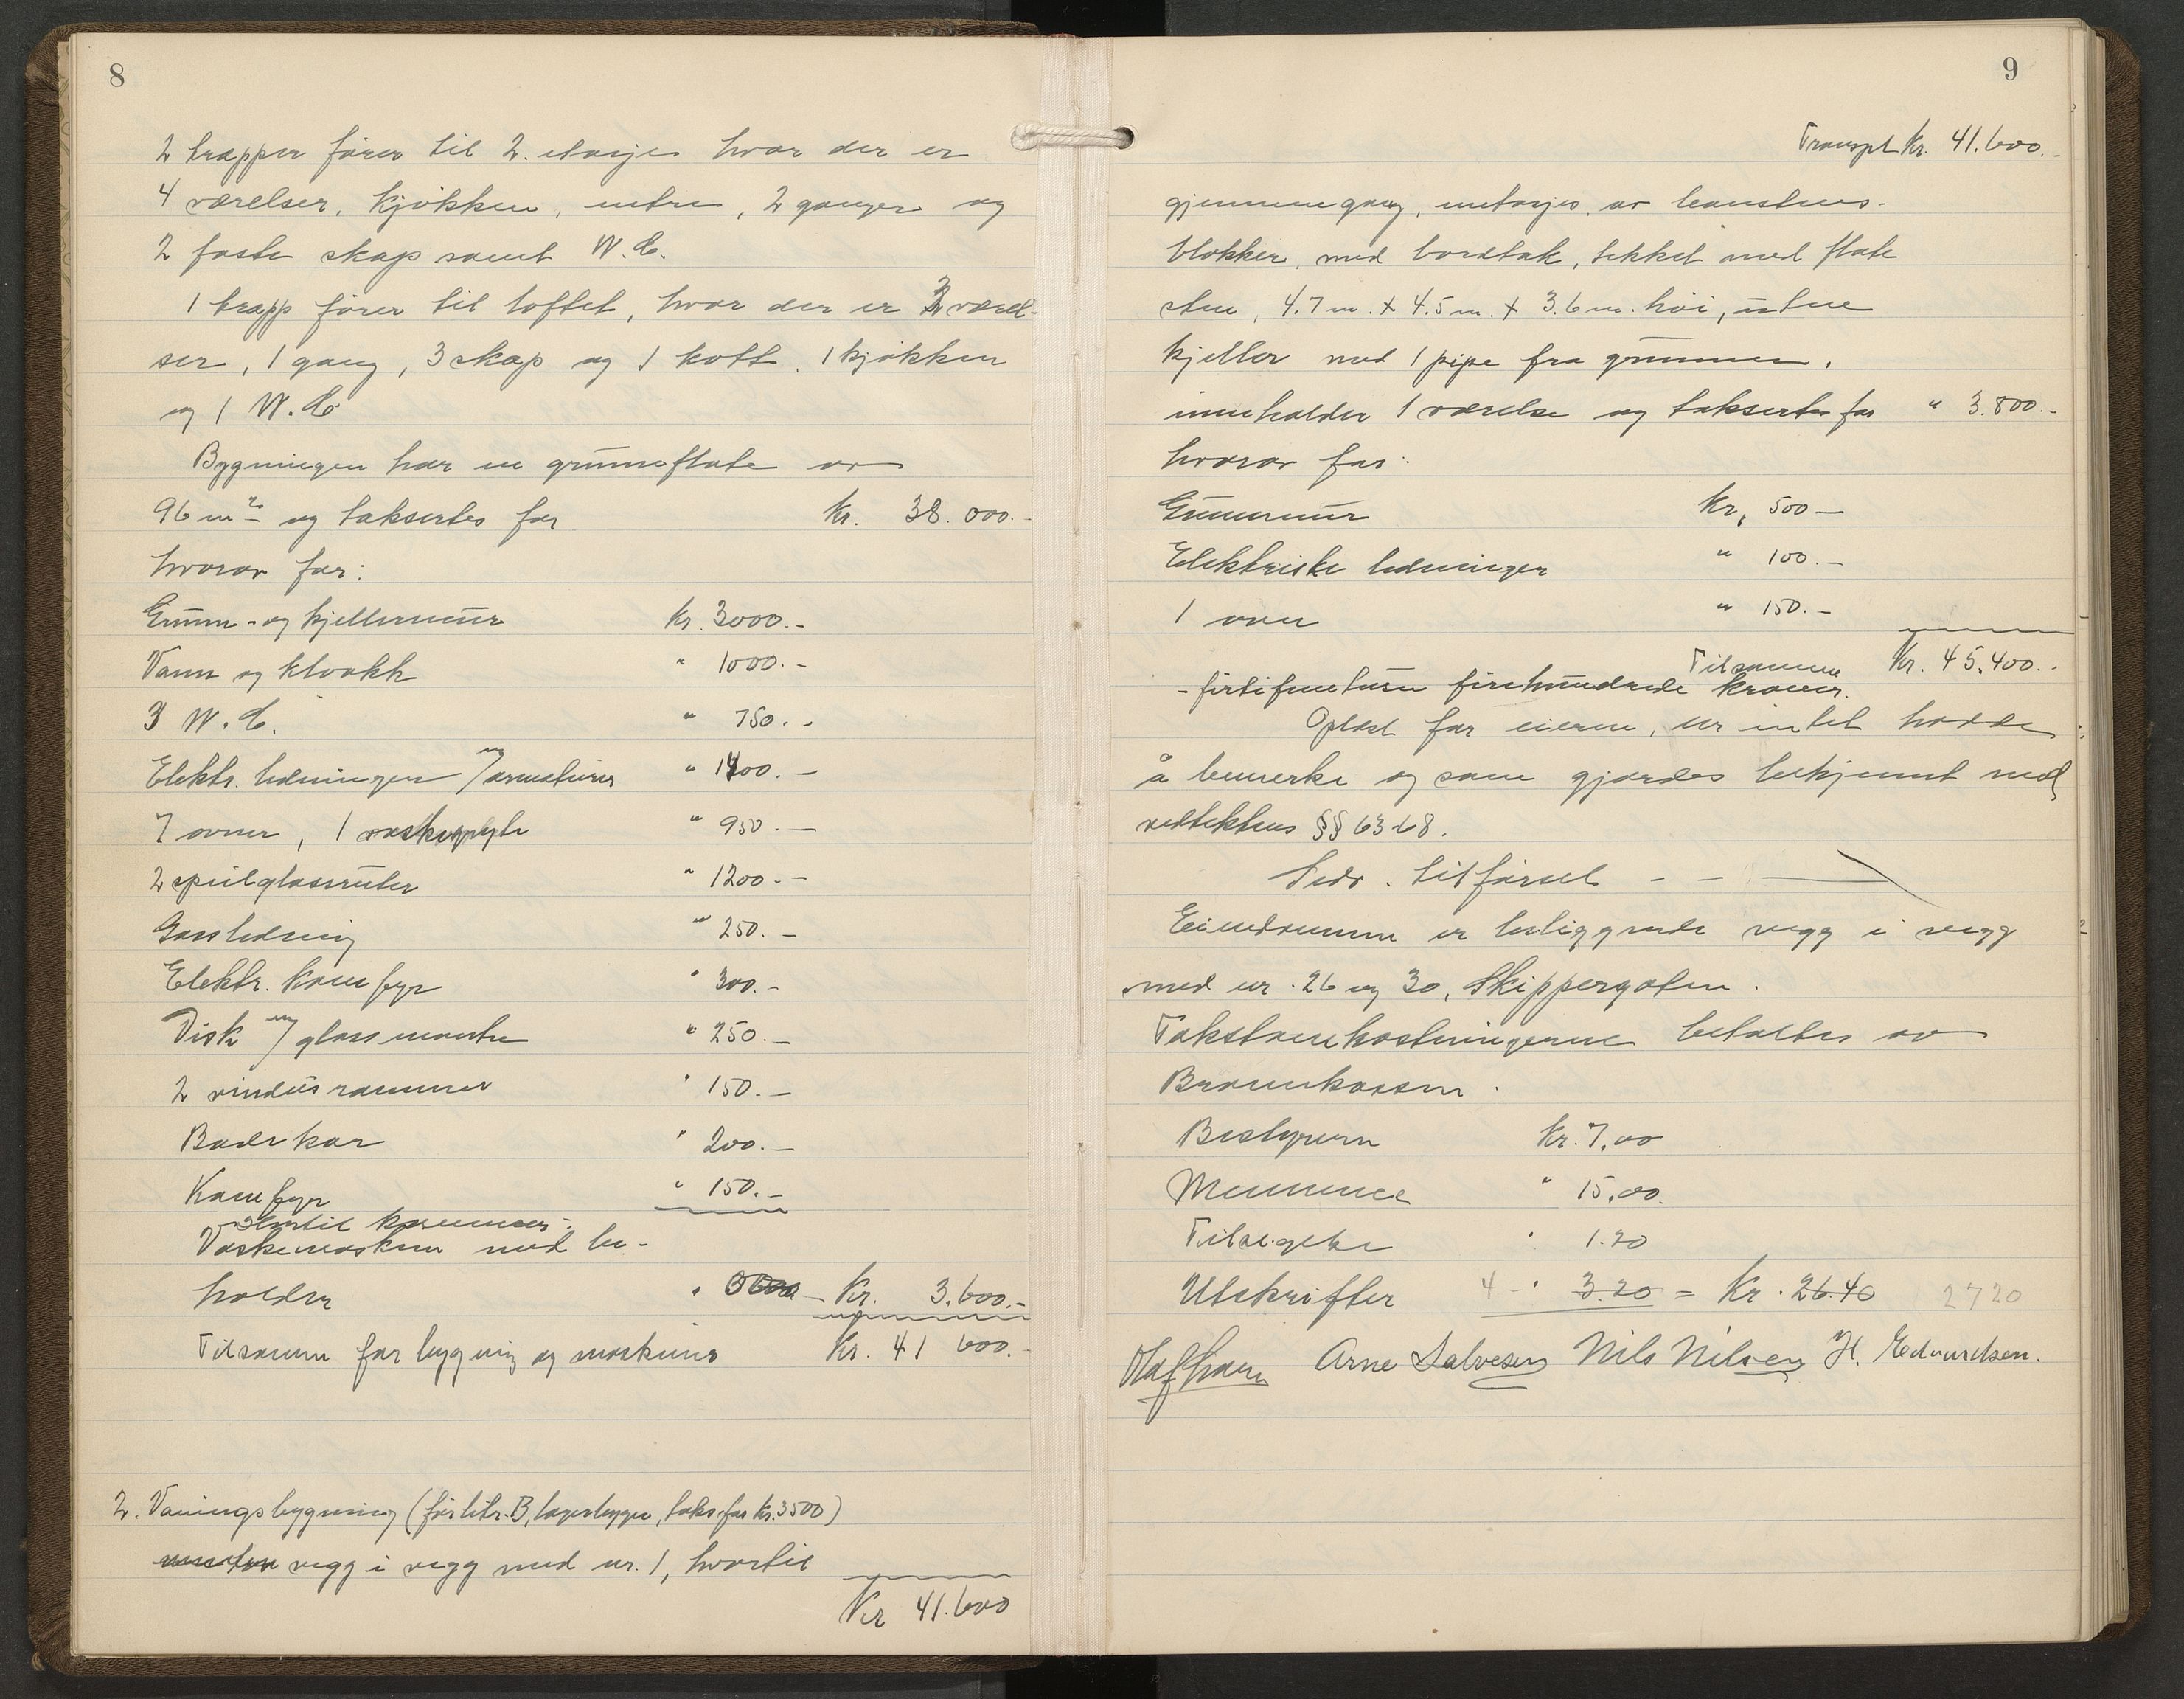 8
2 trapper fører til 2. etasje hvor der er
4 værelser, kjøkken, entre, 2 ganger og
2 faste skap samt W.C.
1 trapp fører til loftet, hvor der er 2 værel-
ser, 1 gang, 3 skap og 1 kott, 1 kjøkken
og 1 W.C
Bygningen har en grunnflate av
96 m² og takseres for Kr. 38.000.-
hvorav for:
Grunn- og kjellermur Kr. 3000.-
Vann og kloakk " 1000.-
3 W.C. " 750.-
Elektr. ledninger og armaturer " 1400.-
7 ovner, 1 " 950.-
2 speilglassruter " 1200.-
Gassledning " 250.-
Elektr. komfyr " 300.-
Disk m/ glassmontre " 250.-
2 vindusrammer " 150.-
Badekar " 200.-
Komfyr " 150.-
Hertil kommer:
Vaskemaskin med be-
holder " Kr. 3.600.-
Tilsamm for bygning og maskiner Kr. 41 600.-
2. Våningsbygning (før litr. B, lagerbygn, taks. for kr. 3500)
vegg i vegg med nr. 1, hvortil
Kr 41.600
9
Transpt Kr. 41.600.-
gjennemgang, enetasjes, av betonstens-
blokker, med bordtak, tekket med flate
sten, 4.7 m. x 4.5 m. x 3.6 m. høi, uten
kjeller med 1 pipe fra grunnen.
inneholder 1 værelse og takseres for " 3.800.-
hvorav for:
Grunnmur Kr. 500-
Elektriske ledninger " 100.-
1 ovn " 150.-
Tilsammen Kr. 45.400.-
- førtifemtusen firehundrede kroner.
Oplest for eieren, der intet hadde
å bemerke og som gjordes bekjent med
vedtektens §§ 63-68.
Sedv. tilførsel - -
Eiendommen er beliggende vegg i vegg
med nr. 26 og 30, Skippergaten.
Takstomkostningerne betaltes av
Brannkassen.
Bestyreren Kr. 7,00
Mennene " 15,00
Tilsigelse " 1.20
Utskrifter 4 - " 3.20 = Kr. 26.40 2720
Arne Salvesen Nils Nilsen H. Edvardsen.